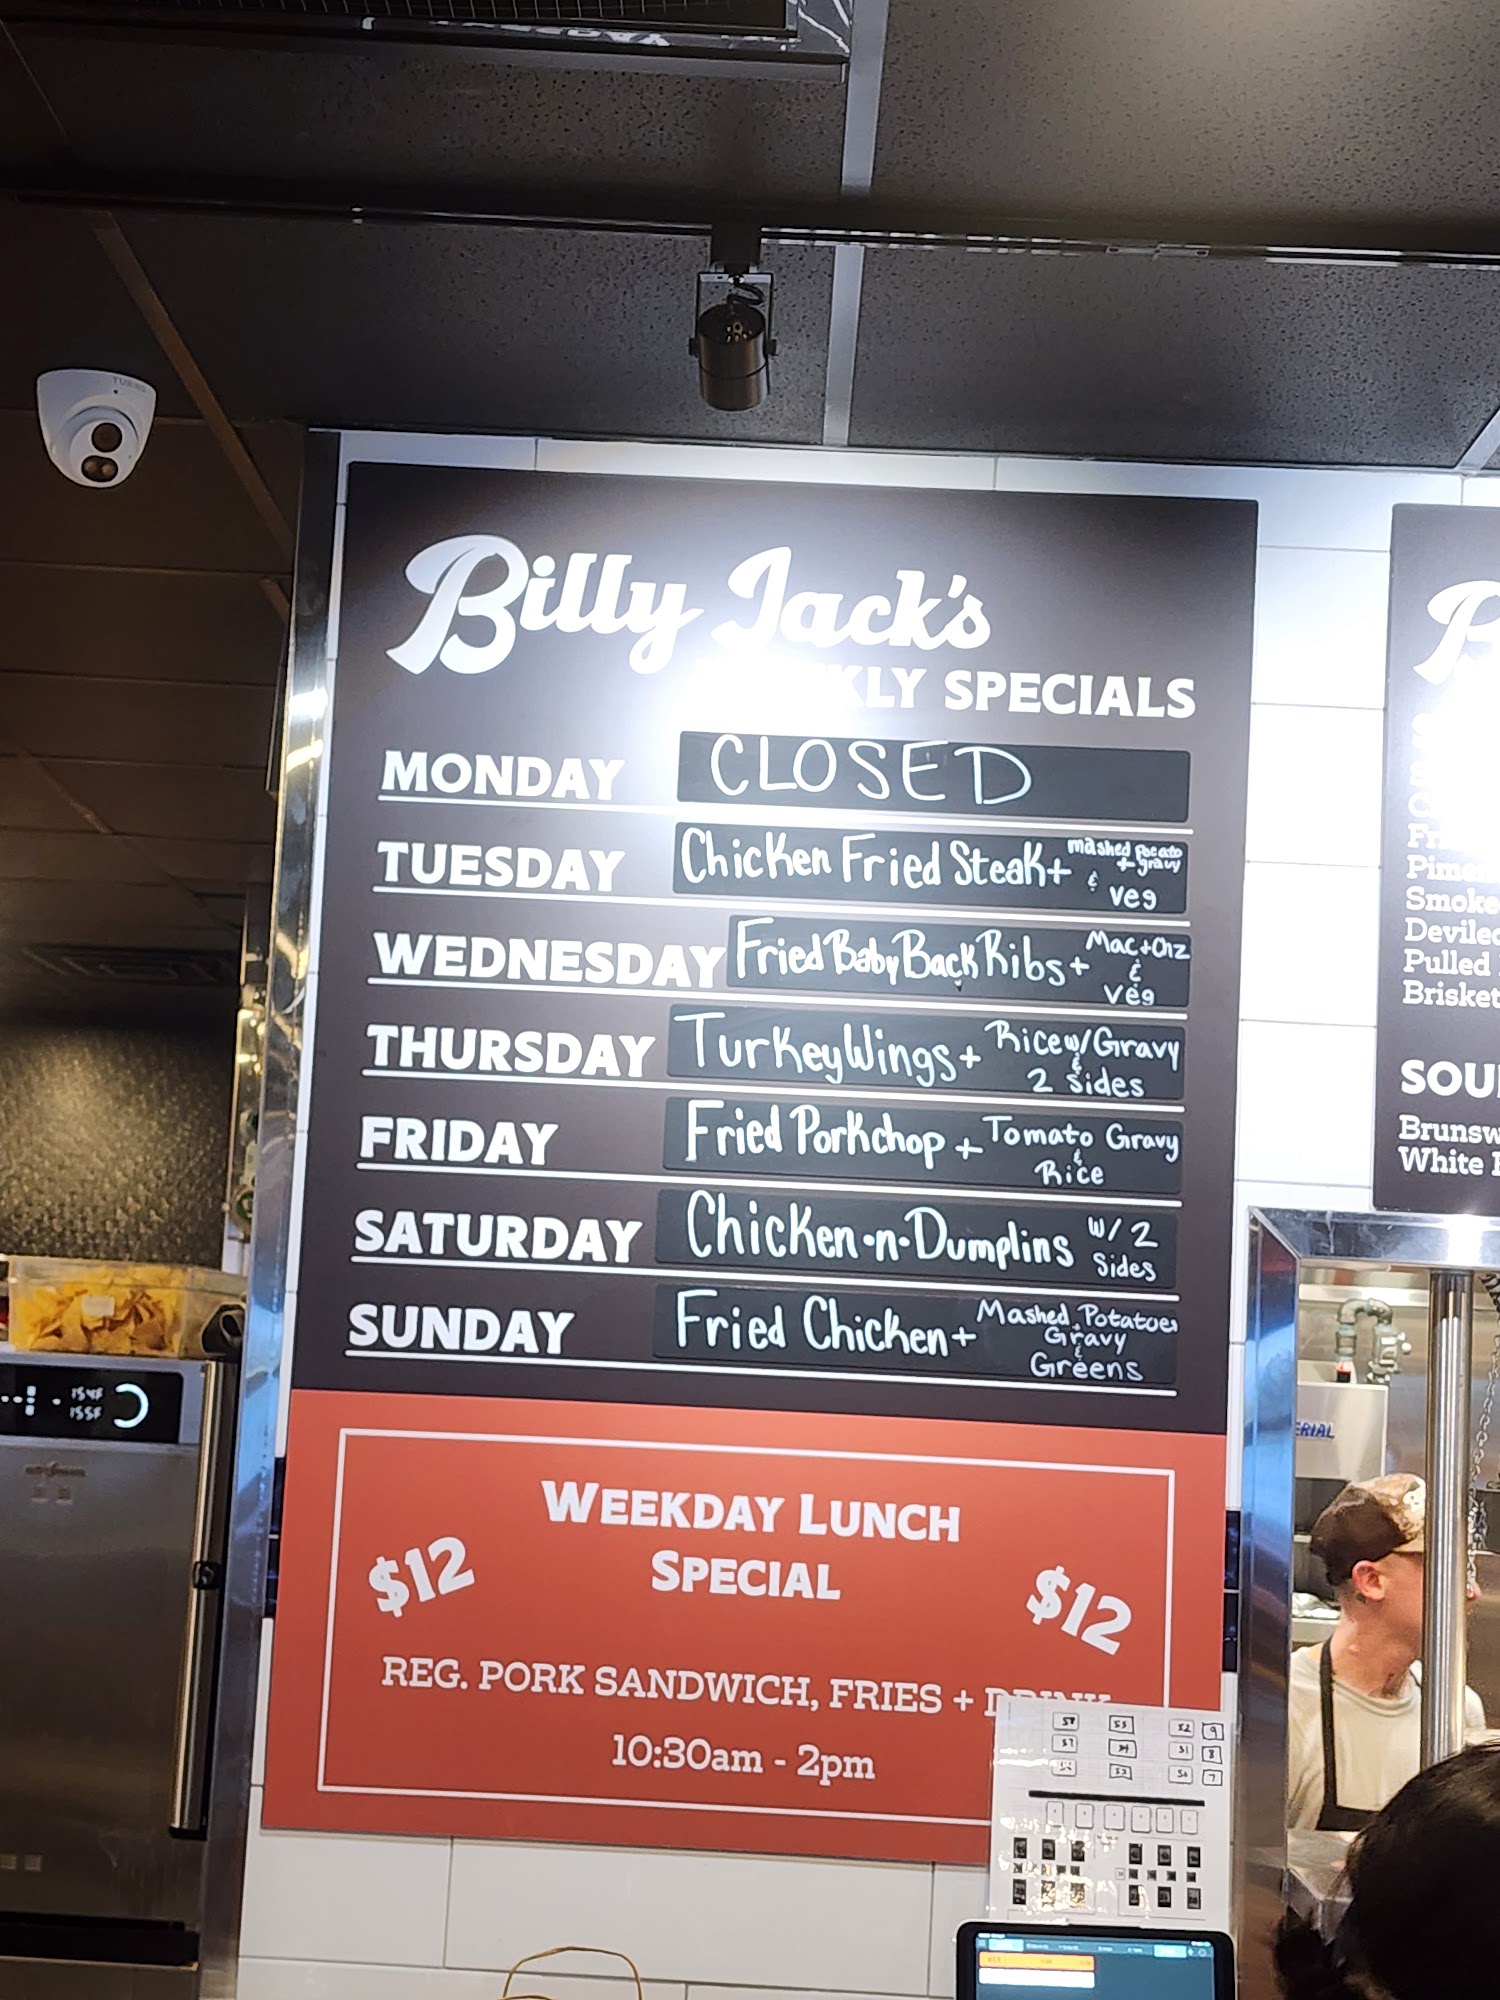 TURING
Billy Jack's
KLY SPECIALS
MONDAY CLOSED
TUESDAY Chicken Fried Steak + mashed potato + gravy & veg
WEDNESDAY Fried Baby Back Ribs + Mac + Chz & veg
THURSDAY Turkey Wings + Rice w/ Gravy & 2 Sides
FRIDAY Fried Porkchop + Tomato Gravy & Rice
SATURDAY Chicken-n-Dumplins w/ 2 Sides
SUNDAY Fried Chicken + Mashed Potatoes, Gravy & Greens
WEEKDAY LUNCH
SPECIAL
$12
$12
REG. PORK SANDWICH, FRIES + DRINK
10:30am - 2pm
Smoke
Deviled
Pulled
Brisket
SOU
Brunsw
White
ERIAL
154F
155F